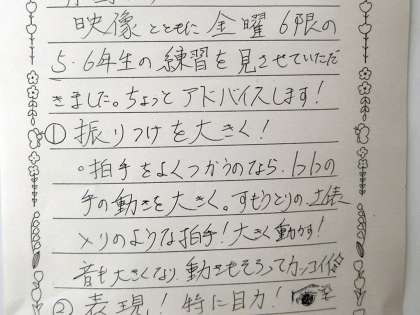 映像とともに金曜6限の
5・6年生の練習を見させていただ
きました。ちょっとアドバイスします!
①振りつけを大きく!
。拍手をよくつかうのなら、1つ1つの
手の動きを大きく。すもうとりの土俵
入りのような拍手!大きく動かす!
音も大きくなり、動きもそろってカッコイイ
②表現!特に目力!